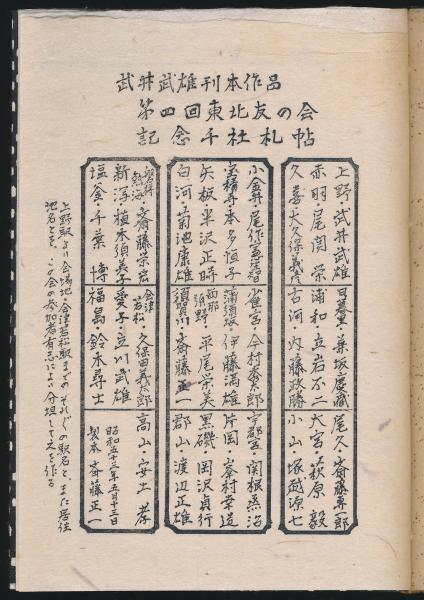 武井武雄刊本作品
第四回東北友の会
記念千社札帖
上野・武井武雄
日暮里・兼坂慶蔵
尾久・斎藤専一郎
赤羽・尾関栄
浦和・立岩不二
大宮・萩原毅
久喜・大久保義彦
古河・内藤政勝
小山・塚越源七
小金井・尾作
雀宮・今村
宇都宮・関根
宝積寺・本多恒子
蒲須坂・伊藤満雄
片岡・峯村幸造
矢板・半沢正時
西那須野・平尾栄美
黒磯・岡沢貞行
白河・菊池康雄
須賀川・斎藤正一
郡山・渡辺正雄
磐梯熱海・斎藤栄宏
会津若松・久保田
高山・安土孝
新潟・植木須美子
愛子・立川武雄
塩釜・千葉博
福島・鈴木尋士
昭和五十三年五月十三日
製本 斎藤正一
上野駅より会場地・会津若松駅までのそれぞれの駅名と、また居住
地名とを、この会の参加者有志により分担して之を作る